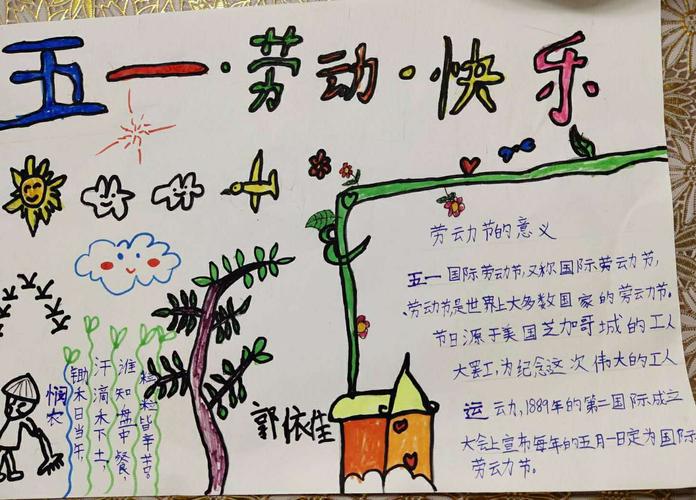 五一·劳动·快乐
劳动节的意义
五一国际劳动节,又称国际劳动节,
劳动节是世界上大多数国家的劳动节。
节日源于美国芝加哥城的工人
大罢工,为纪念这次伟大的工人
运动,1889年的第二国际成立
大会上宣布每年的五月一日定为国际
劳动节。
悯农
锄木日当午
汗滴木下土,
谁知盘中餐,
粒粒皆辛苦。
郭依佳